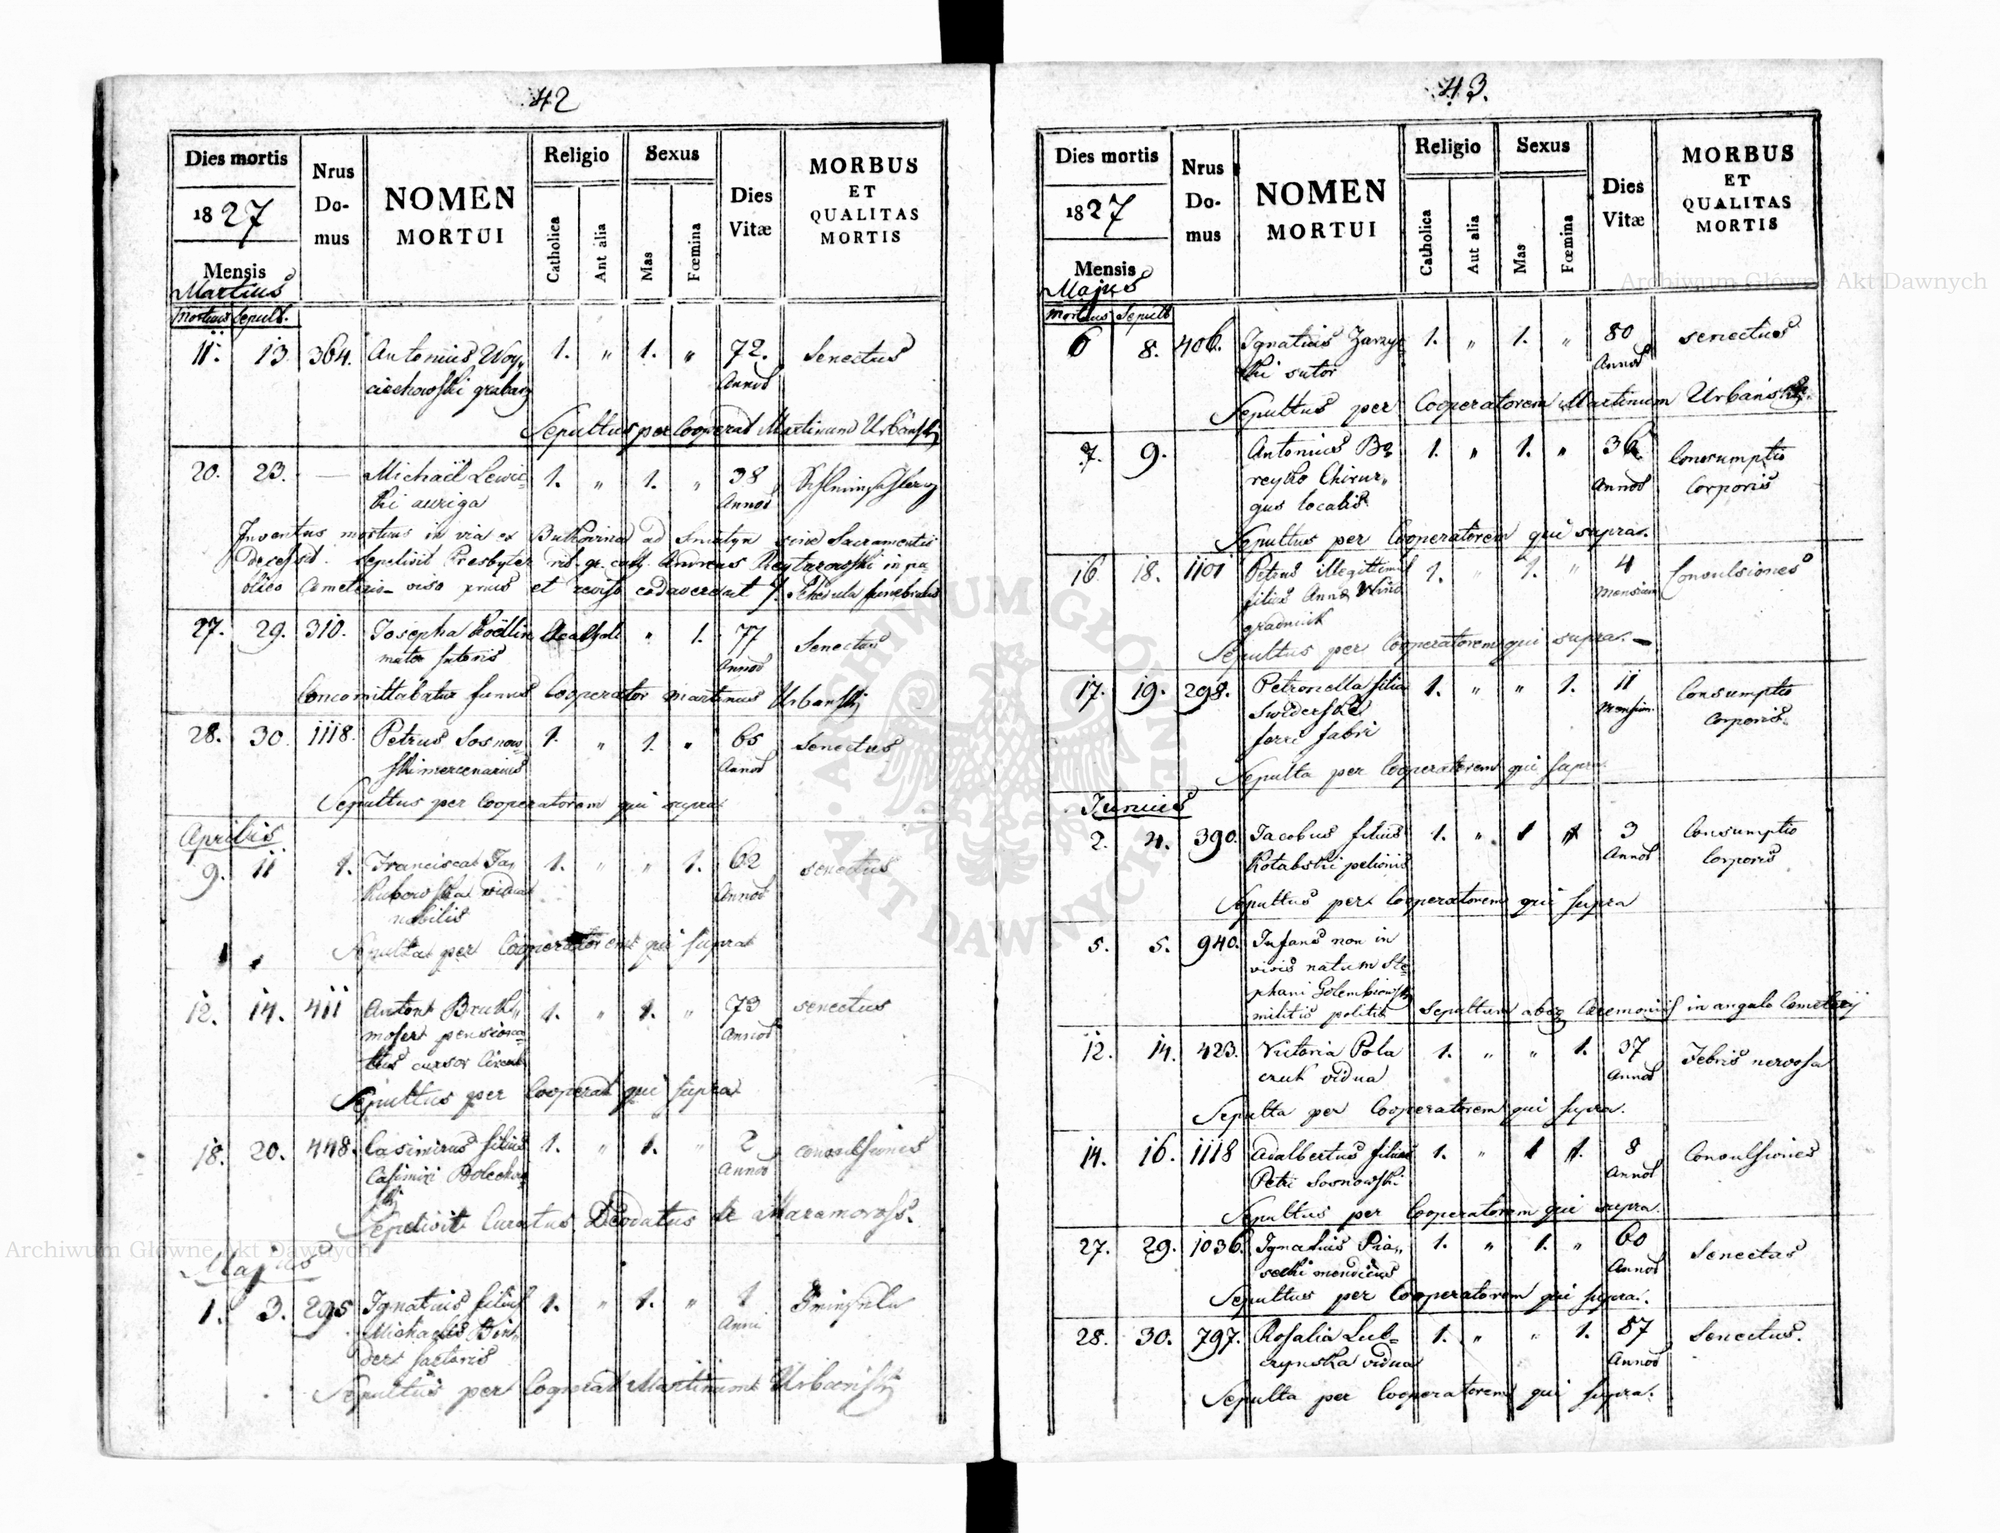 42
Dies mortis
Nrus Do- mus
NOMEN MORTUI
Religio
Sexus
Dies Vitæ
MORBUS ET QUALITAS MORTIS
1827
Catholica
Aut alia
Mas
Fœmina
Mensis
Martius
Mortuus Sepult.
11. 13. 364. Antonius Woy„ 1. „ 1. „ 72. Senectus
ciechowski Annos
Sepultus per Cooperat Martinum Urbanski
20. 23. — Michaël Lewic- 1. „ 1. „ 38
ki auriga Annos
Inventus mortuus in via ex Bukovina ad Sniatyn sine Sacramentis
Decessit. Sepelivit Presbyter rit. gr. cath. Andreas in pu-
blico Cometerio viso prius et Schedula funebralis
27. 29. 310. Josepha Acathol „ 1. 77 Senectus
Annos
Concomittabatur funus Cooperator Martinus Urbanski
28. 30. 1118. Petrus Sosnow- 1. „ 1. „ 65 Senectus
ski mercenarius Annos
Sepultus per Cooperatorem qui supra
Aprilis
9. 11 1. Francisca Ja„ 1. „ „ 1. 62 senectus
kubowska vidua Annos
nobilis
Sepulta per Cooperatorem qui supra
12. 14. 411 Anton 1. „ 1. „ 73 senectus
Annos
cursor
Sepultus per Cooperat qui supra
18. 20. 448. Casimirus filius 1. „ 1. „ 2 convulsiones
Casimiri Annos
Sepelivit Curatus Deodatus de
Majus
1. 3. 295 Ignatius filius 1. „ 1. „ 1
Michaelis Bin„ Anni
der sartoris
Sepultus per Cooperat Martinum Urbanski
43.
Dies mortis
Nrus Do- mus
NOMEN MORTUI
Religio
Sexus
Dies Vitæ
MORBUS ET QUALITAS MORTIS
1827
Catholica
Aut alia
Mas
Fœmina
Mensis
Majus
Mortuus Sepult
6 8. 406. Ignatius Zarzyc 1. „ 1. „ 80 senectus
ki sutor Annos
Sepultus per Cooperatorem Martinum Urbanski.
7. 9. Antonius Bo 1. „ 1. „ 36 Consumptio
reyko Chirur„ Annos Corporis
gus localis
Sepultus per Cooperatorem qui supra.
16. 18. 1101 Petrus illegittimus 1. „ 1. „ 4 Convulsiones
filius Annæ Wino Mensium
gradnik
Sepultus per Cooperatorem qui supra. —
17. 19. 298. Petronella filia 1. „ „ 1. 11 Consumptio
Swiderski Mensium Corporis.
ferri fabri
Sepulta per Cooperatorem qui supra
Junius
2. 4. 390. Jacobus filius 1. „ 1 1 3 Consumptio
Kotabski pelionis Annos Corporis
Sepultus per Cooperatorem qui supra
5. 5. 940. Infans non in
vivis natum Ste
phani Golembiowski
militis politii Sepultum absq Ceremoniis in angulo Cemeterij
12. 14. 423. Victoria Pola 1. „ „ 1. 37 Febris nervosa
czuk vidua Annos
Sepulta per Cooperatorem qui supra.
14. 16. 1118 Adalbertus filius 1. „ 1 1. 8 Convulsiones
Petri Sosnowski Annos
Sepultus per Cooperatorem qui supra.
27. 29. 1036. Ignatius Pia„ 1. „ 1. „ 60 Senectus
secki mendicus Annos
Sepultus per Cooperatorem qui supra.
28. 30. 797. Rosalia Lub- 1. „ „ 1. 87 Senectus.
czynska vidua Annos
Sepulta per Cooperatorem qui supra.
Archiwum Główne Akt Dawnych
Archiwum Główne Akt Dawnych
ARCHIWUM GŁÓWNE AKT DAWNYCH